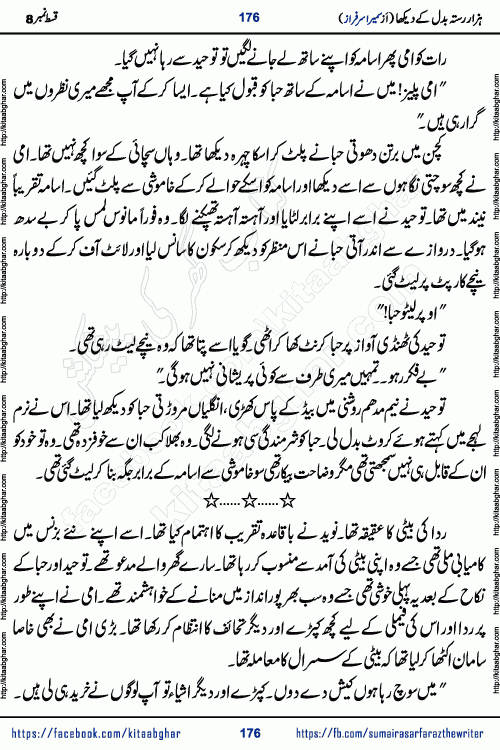 ہزار رستہ بدل کے دیکھا (از سمیرا سرفراز) 176 قسط نمبر 8
رات کو امی پھر اسامہ کو اپنے ساتھ لے جانے لگیں تو توحید سے رہا نہیں گیا۔
"امی پلیز! میں نے اسامہ کے ساتھ حبا کو قبول کیا ہے۔ ایسا کر کے آپ مجھے میری نظروں میں
گرا رہی ہیں۔"
کچن میں برتن دھوتی حبا نے پلٹ کر اسکا چہرہ دیکھا تھا۔ وہاں سچائی کے سوا کچھ نہیں تھا۔ امی
نے کچھ سوچتی نگاہوں سے اسے دیکھا اور اسامہ کو اسکے حوالے کر کے خاموشی سے پلٹ گئیں۔ اسامہ تقریباً
نیند میں تھا۔ توحید نے اسے اپنے برابر لٹایا اور آہستہ آہستہ تھپکنے لگا۔ وہ فوراً مانوس لمس پا کر بے سدھ
ہو گیا۔ دروازے سے اندر آتی حبا نے اس منظر کو دیکھ کر سکون کا سانس لیا اور لائٹ آف کر کے دوبارہ
نیچے کارپٹ پر لیٹ گئی۔
"اوپر لیٹو حبا!"
توحید کی ٹھنڈی آواز پر حبا کرنٹ کھا کر اٹھی۔ گویا اسے پتا تھا کہ وہ نیچے لیٹ رہی تھی۔
"بے فکر رہو۔۔ تمہیں میری طرف سے کوئی پریشانی نہیں ہو گی۔"
توحید نے نیم مدھم روشنی میں بیڈ کے پاس کھڑی، انگلیاں مروڑتی حبا کو دیکھ لیا تھا۔ اس نے نرم
لہجے میں کہتے ہوئے کروٹ بدل لی۔ حبا کو شرمندگی سی ہونے لگی۔ وہ بھلا کب ان سے خوفزدہ تھی۔ وہ تو خود کو
ان کے قابل ہی نہیں سمجھتی تھی مگر وضاحت بیکار تھی سو خاموشی سے اسامہ کے برابر جگہ بنا کر لیٹ گئی تھی۔
☆......☆......☆
ردا کی بیٹی کا عقیقہ تھا۔ نوید نے باقاعدہ تقریب کا اہتمام کیا تھا۔ اسے اپنے نئے بزنس میں
کامیابی ملی تھی جسے وہ اپنی بیٹی کی آمد سے منسوب کر رہا تھا۔ سارے گھر والے مدعو تھے۔ توحید اور حبا کے
نکاح کے بعد یہ پہلی خوشی تھی جسے وہ سب بھرپور انداز میں منانے کے خواہشمند تھے۔ امی نے اپنے طور
پر ردا اور اس کی فیملی کے لیے کچھ کپڑے اور دیگر تحائف کا انتظام کر رکھا تھا۔ بڑی امی نے بھی خاصا
سامان اکٹھا کر لیا تھا کہ بیٹی کے سسرال کا معاملہ تھا۔
"میں سوچ رہا ہوں کیش دے دوں۔ کپڑے اور دیگر اشیاء تو آپ لوگوں نے خرید ہی لی ہیں۔
https://facebook.com/kitaabghar 176 https://fb.com/sumairasarfarazthewriter
http://kitaabghar.com